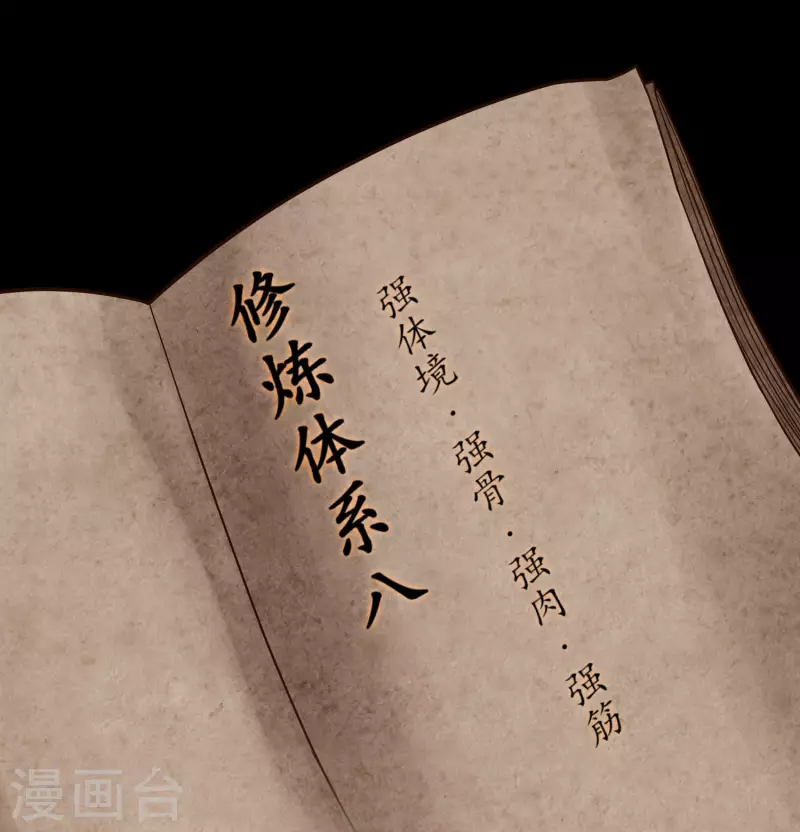 修炼体系八
强体境·强骨·强肉·强筋
漫画台